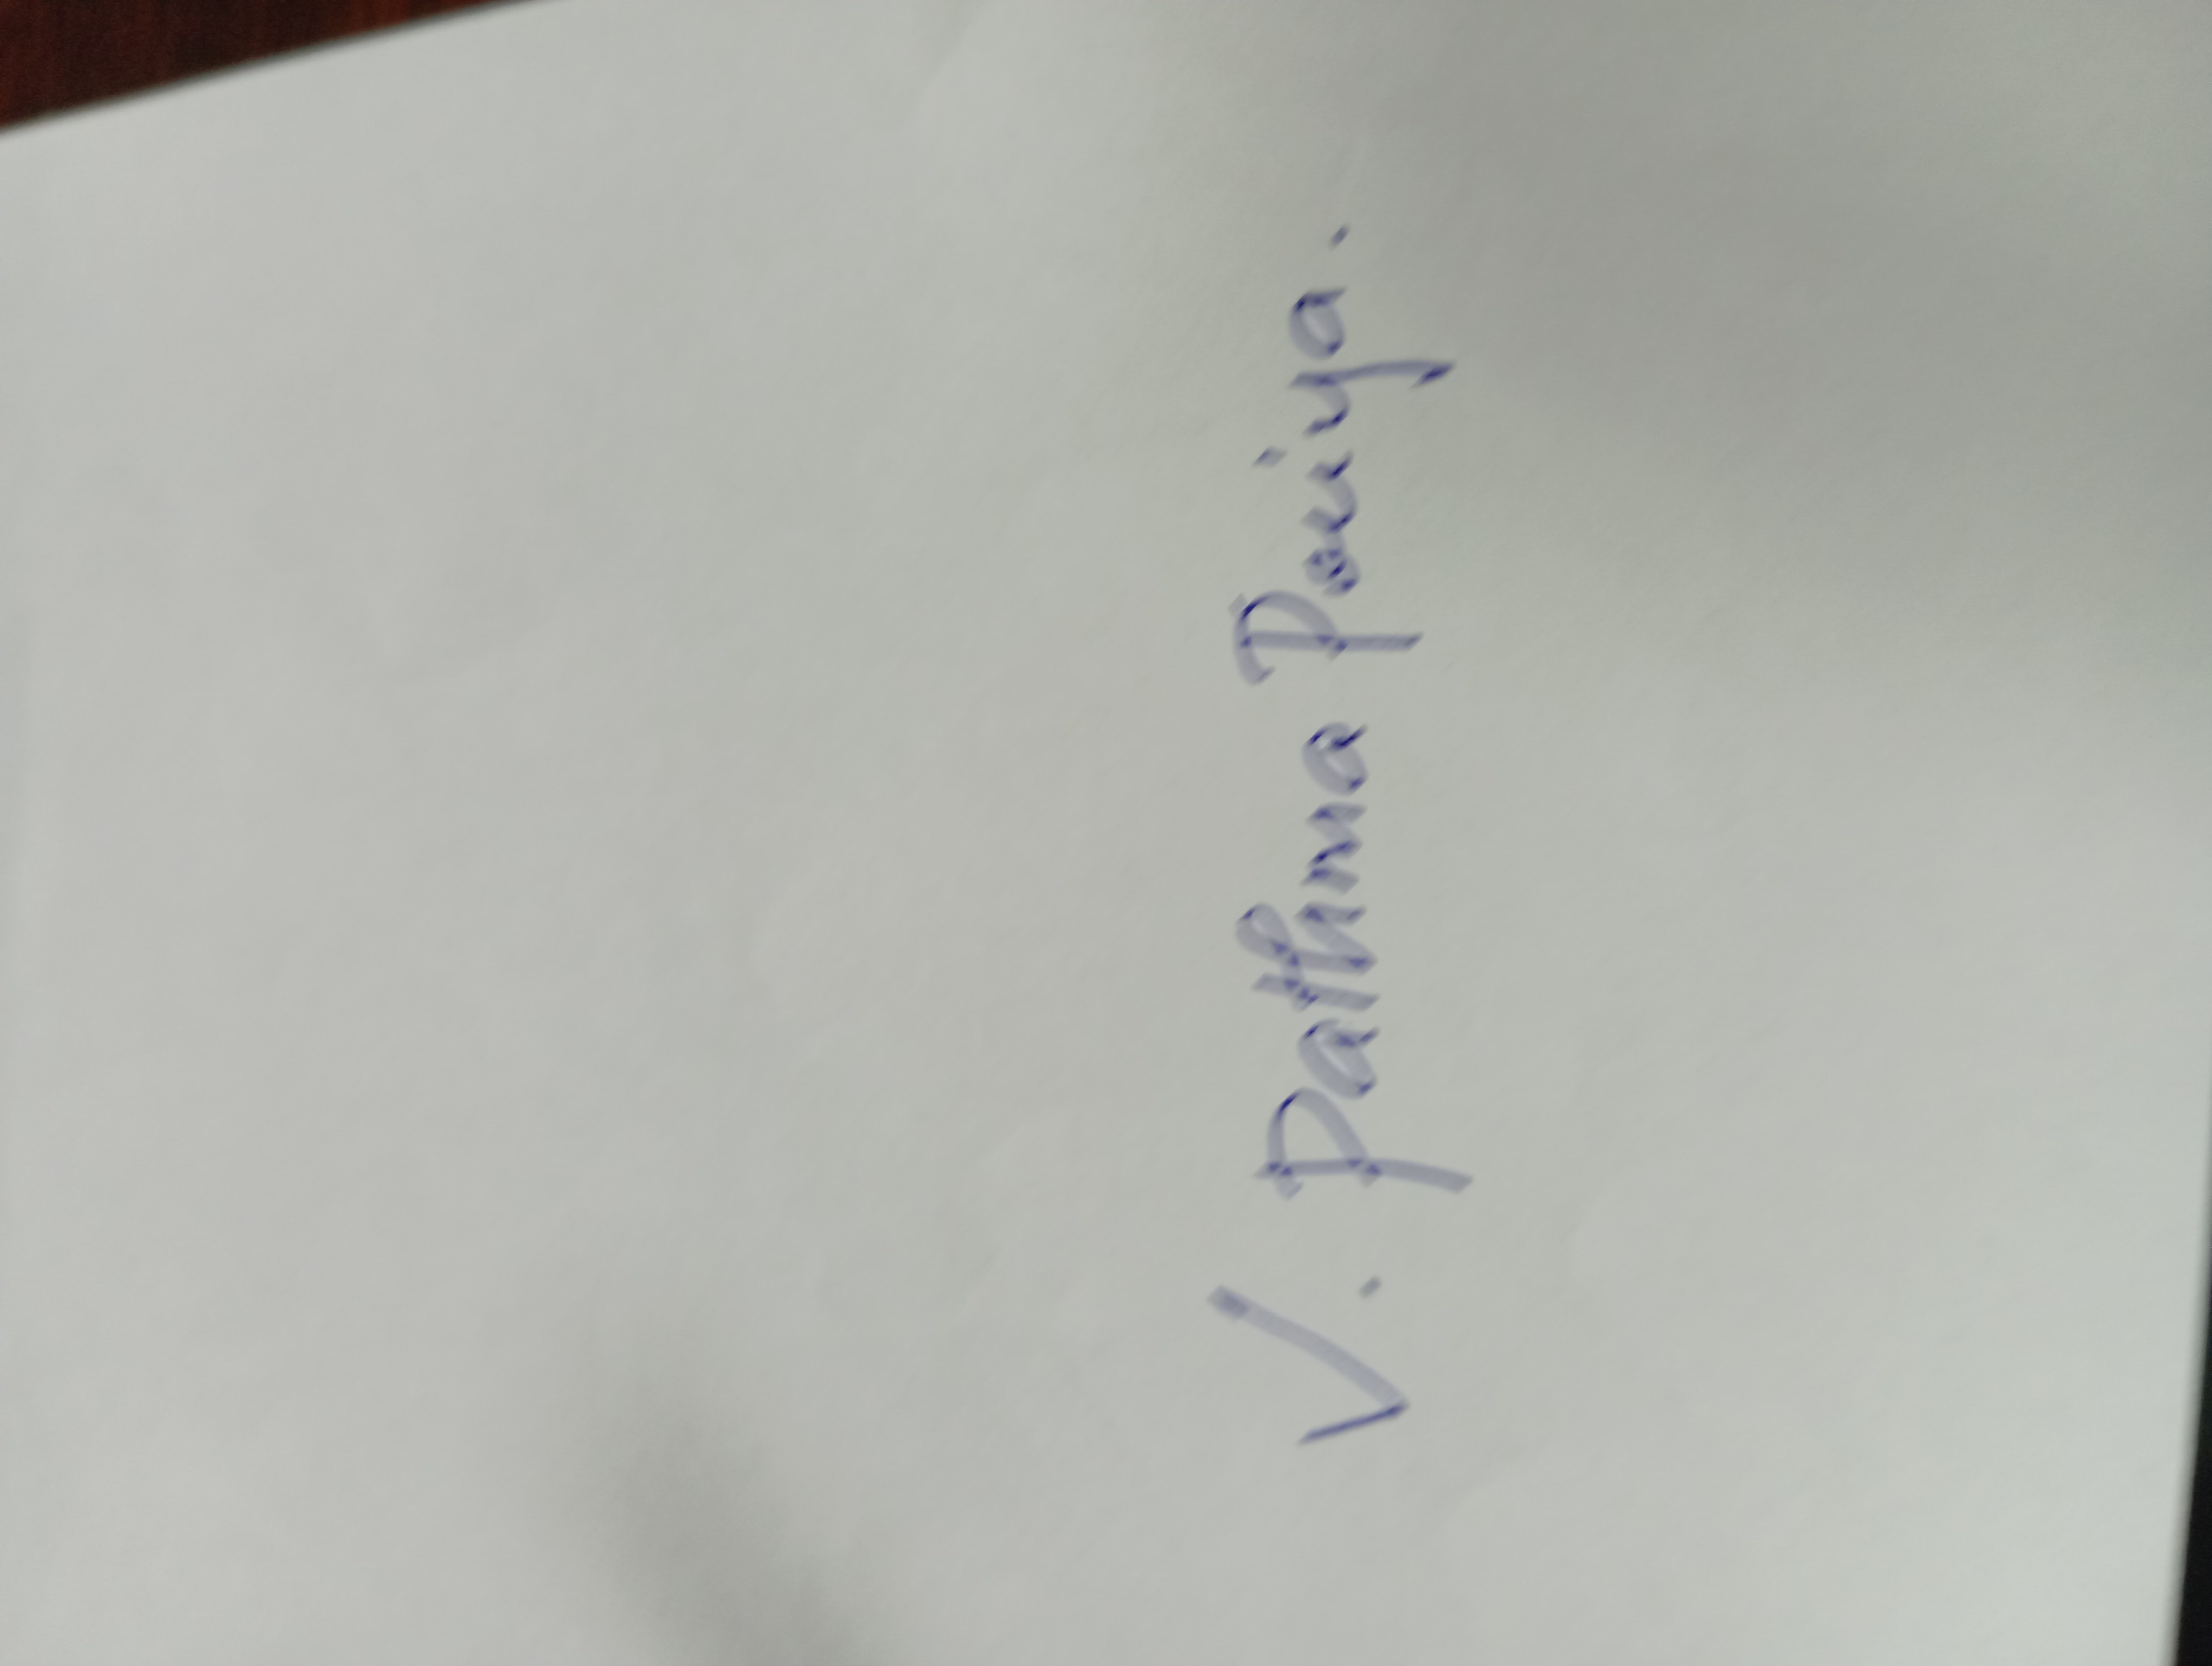 V. Pathma Poriya.